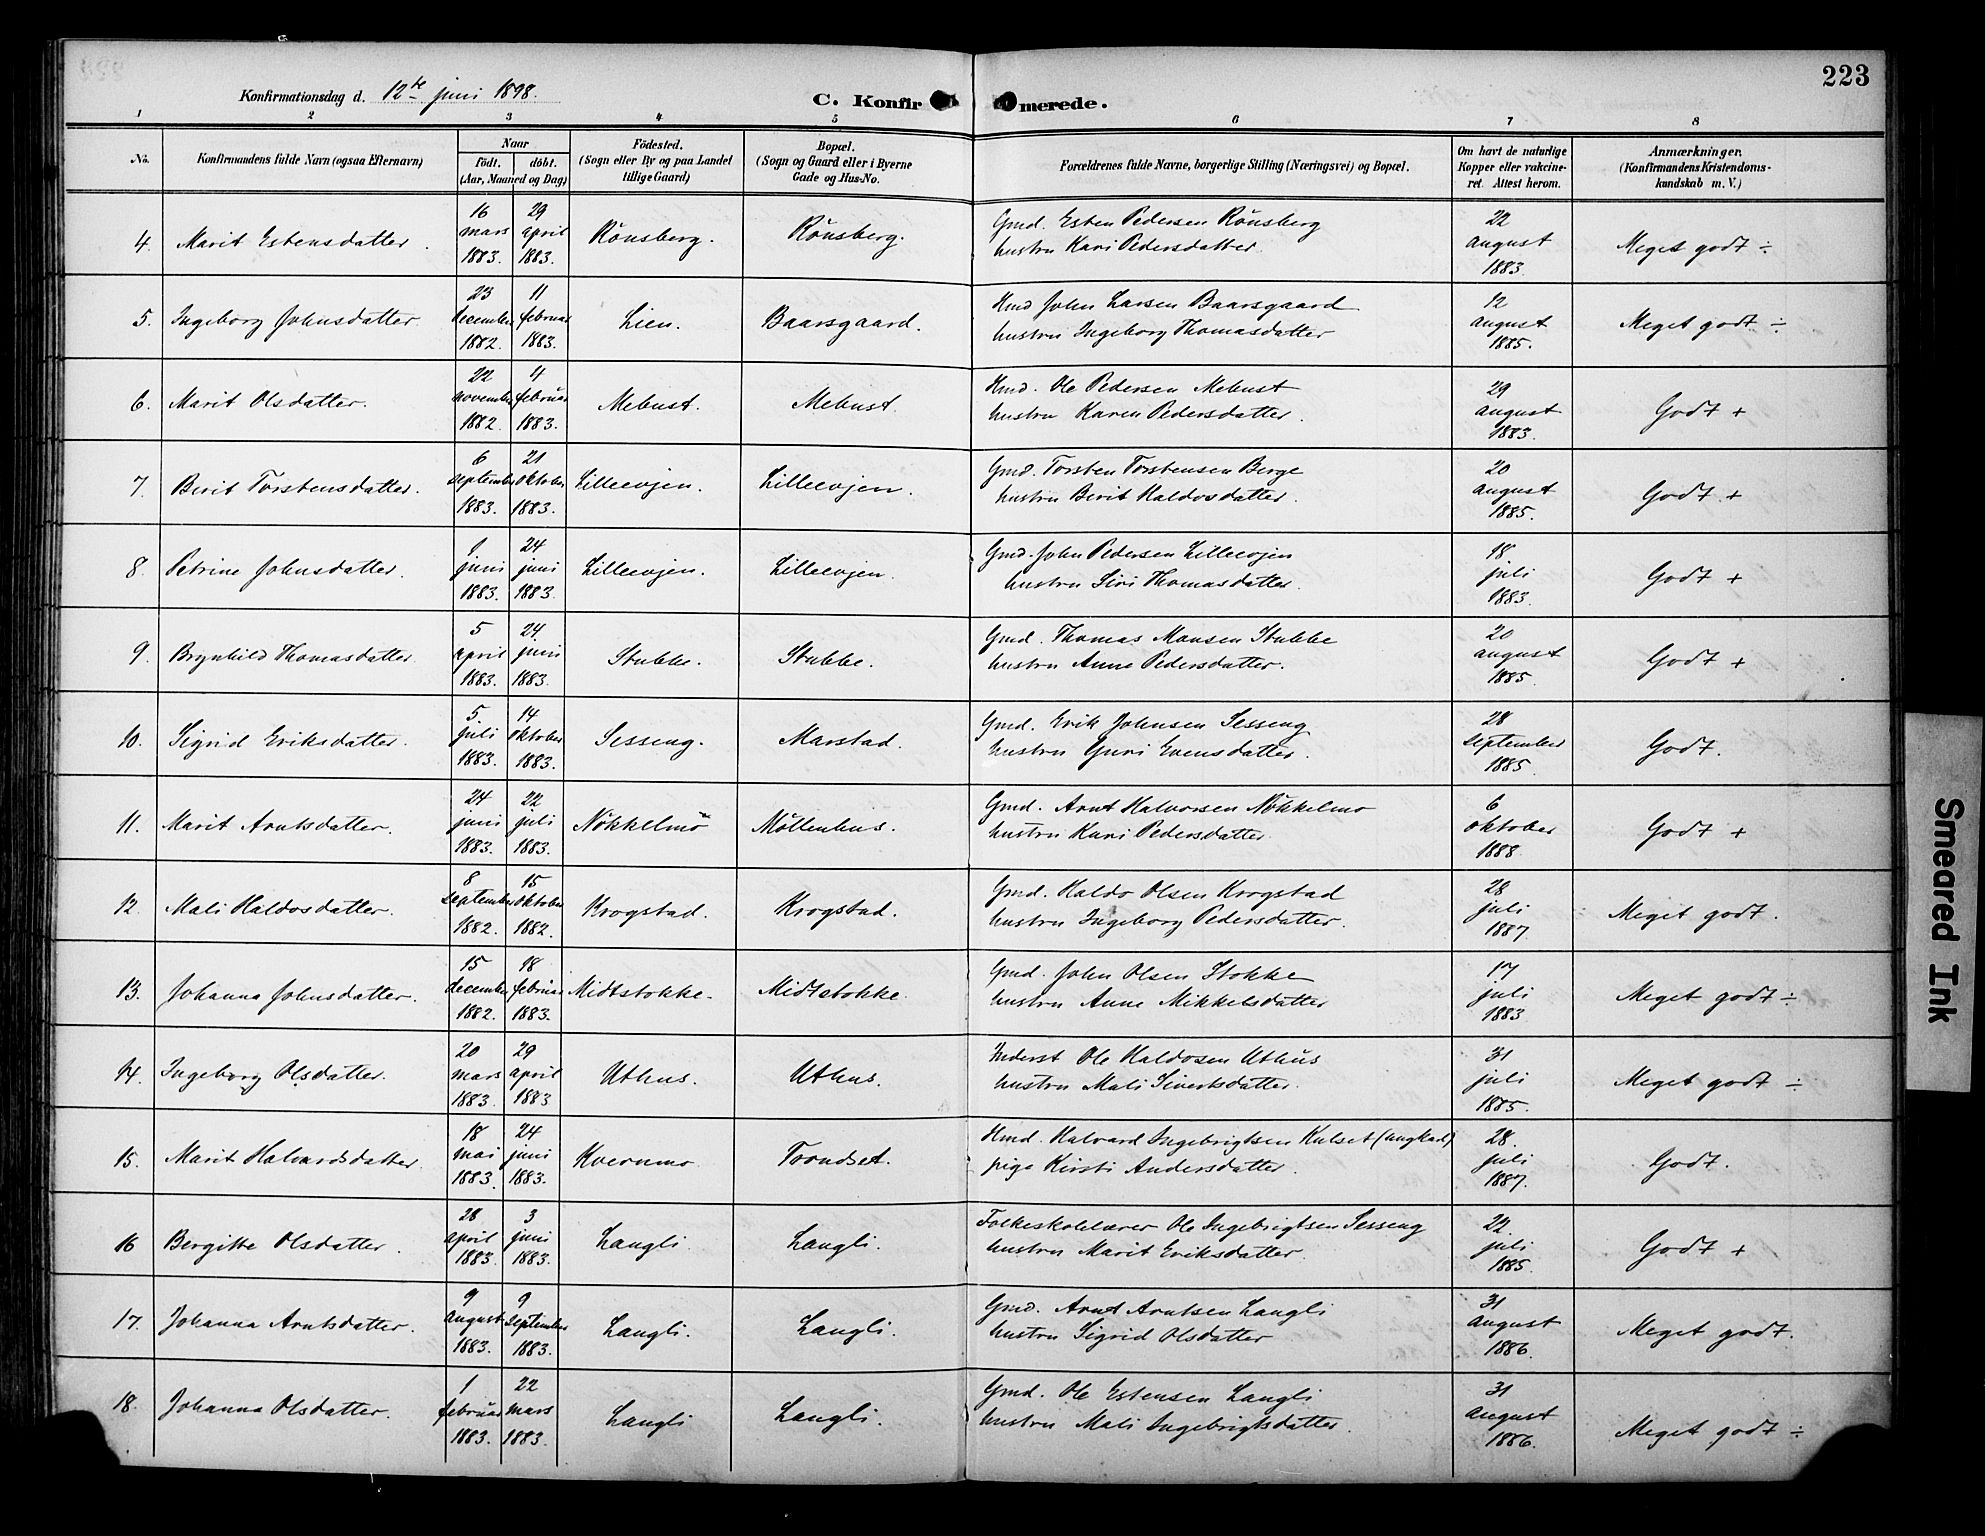 223
Konfirmationsdag d. 12te juni 1898.
C. Konfir merede.
1 2 3 4 5 6 7 8
No. Konfirmandens fulde Navn (ogsaa Efternavn) Naar født. døbt. (Aar, Maaned og Dag) Fødested. (Sogn eller By og paa Landet tillige Gaard) Bopæl. (Sogn og Gaard eller i Byerne Gade og Hus-No. Forældrenes fulde Navne, borgerlige Stilling (Næringsvei) og Bopæl. Om havt de naturlige Kopper eller vakcineret. Attest herom. Anmærkninger. (Konfirmandens Kristendomskundskab m. V.)
4. Marit Estensdatter. 16 mars 1883. 29 april 1883. Rönsberg. Rönsberg. Gmd. Esten Pedersen Rönsberg hustru Kari Pedersdatter 22 august 1883. Meget godt ÷
5. Ingeborg Johnsdatter. 23 december 1882. 11 februar 1883. Lien. Baarsgaard. Hmd John Larsen Baarsgaard hustru Ingeborg Thomasdatter 12 august 1885. Meget godt ÷
6. Marit Olsdatter. 22 november 1882. 4 februar 1883. Mebust. Mebust. Hmd. Ole Pedersen Mebust hustru Karen Pedersdatter. 29 august 1883. Godt +
7. Berit Torstensdatter. 6 september 1883. 21 oktober 1883. Lilleevjen. Lilleevjen. Gmd. Torsten Torstensen Berge hustru Berit Haldosdatter. 20 august 1885. Godt +
8. Petrine Johnsdatter. 1 juni 1883. 24 juni 1883. Lilleevjen. Lilleevjen. Gmd. John Pedersen Lilleevjen hustru Siri Thomasdatter. 18 juli 1883. Godt +
9. Brynhild Thomasdatter 5 april 1883. 24 juni 1883. Stubbe. Stubbe. Gmd. Thomas Monsen Stubbe hustru Anne Pedersdatter. 20 august 1885. Godt +
10. Sigrid Eriksdatter. 5. juli 1883. 14 oktober 1883. Sesseng. Marstad. Gmd. Erik Johnsen Sesseng hustru Guri Evensdatter. 28 september 1885. Godt.
11. Marit Arntsdatter. 24 juni 1883. 22 juli 1883. Nökkelmo Möllenhus. Gmd. Arnt Halvorsen Nökkelmo hustru Kari Pedersdatter. 6 oktober 1888. Godt +
12. Mali Haldosdatter. 8 september 1882. 15 oktober 1882. Krogstad. Krogstad. Gmd. Haldo Olsen Krogstad hustru Ingeborg Pedersdatter. 28 juli 1887. Meget godt.
13. Johanna Johnsdatter. 15 december 1882. 18 februar 1883. Midtstokke. Midtstokke. Gmd. John Olsen Stokke hustru Anne Mikkelsdatter 17 juli 1883 Meget godt ÷
14. Ingeborg Olsdatter. 20 mars 1883. 29 april 1883 Uthus. Uthus. Inderst Ole Haldosen Uthus hustru Mali Sivertsdatter. 31 juli 1885. Meget godt ÷
15. Marit Halvardsdatter. 18 mai 1883. 24 juni 1883. Kvernmo Trondset. Hmd. Halvard Ingebrigtsen Kulset (ungkarl) pige Kirsti Andersdatter. 28. juli 1887. Godt.
16 Bergitte Olsdatter. 28 april 1883. 3 juni 1883. Langli. Langli. Folkeskolelærer Ole Ingebrigtsen Sesseng hustru Marit Eriksdatter. 22. juli 1885. Godt +
17. Johanna Arntsdatter. 9 august 1883. 9 september 1883. Langli. Langli. Gmd. Arnt Arntsen Langli hustru Sigrid Olsdatter 31 august 1886. Meget godt.
18. Johanna Olsdatter. 1 februar 1883. 22 mars 1883. Langli Langli. Gmd. Ole Estensen Langli hustru Mali Ingebrigtsdatter. 31 august 1886. Meget godt ÷
Smeared Ink